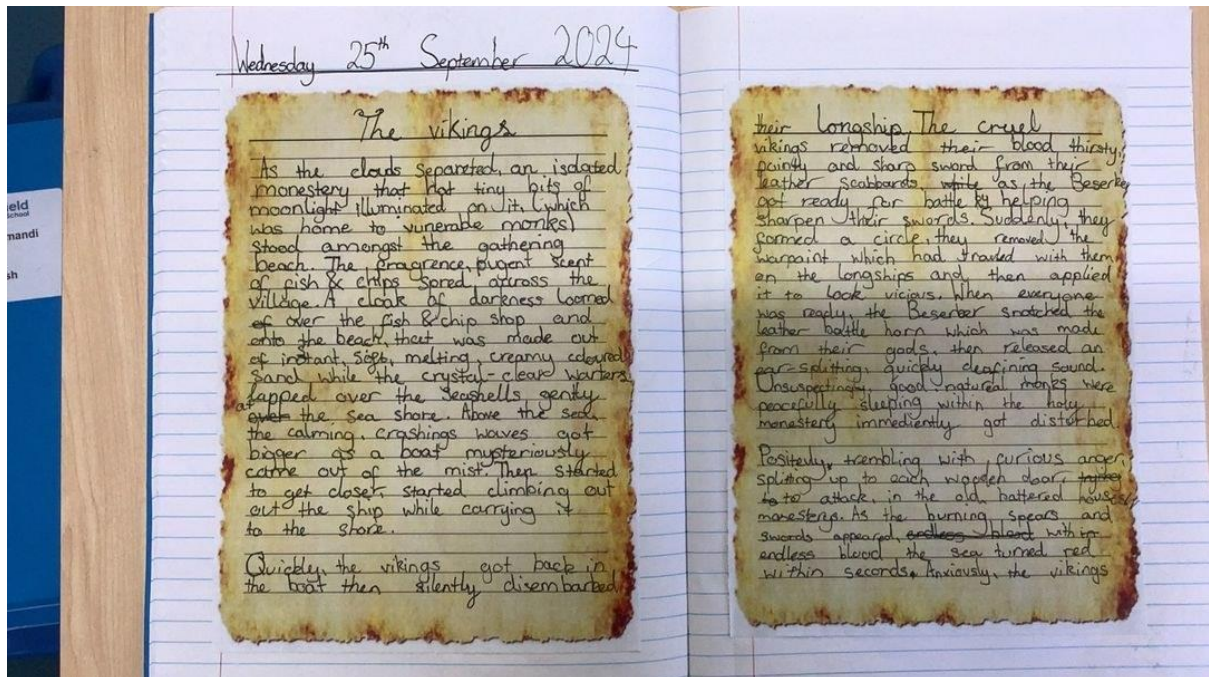 Wednesday 25th September 2024
The vikings
As the clouds separeted, an isolated
monestery that hot tiny bits of
moonlight illuminated on it, (which
was home to vunerabe monks)
stood amongst the gathering
beach. The fragrence, pugent scent
of fish & chips spred across the
village. A cloak of darkness loomed
of over the fish & chip shop and
onto the beach, that was made out
of instant, soft, melting, creamy coloured
sand while the crystal-clear warters
lapped over the seashells gently
at over the sea shore. Above the sea,
the calming, crashings waves got
bigger as a boat mysteriously
came out of the mist. Then started
to get closer, started climbing out
out the ship while carrying it
to the shore.
Quickly, the vikings got back in
the boat then silently disembarked
their longship. The cruel
vikings removed their blood thirsty,
pointy and sharp sword from their
leather scabbards, while as, the Beserker
got ready for battle by helping
sharpen their swords. Suddenly, they
formed a circle, they removed the
warpaint which had traveled with them
on the longships and then applied
it to look vicious. When everyone
was ready, the Beserber snatched the
leather battle horn which was made
from their gods, then released an
ear-splitting, quickly deafining sound.
Unsuspectingly, good natural monks were
peacefully sleeping within the holy
monestery immediently got disturbed.
Positedly, trembling with furious anger,
splitting up to each wooden door,
to to attack, in the old, battered houses/
monestery. As the burning spears and
swords appeared, endless blood with in
endless blood the sea turned red
within seconds. Anxiously, the vikings
eld
School
mandi
sh